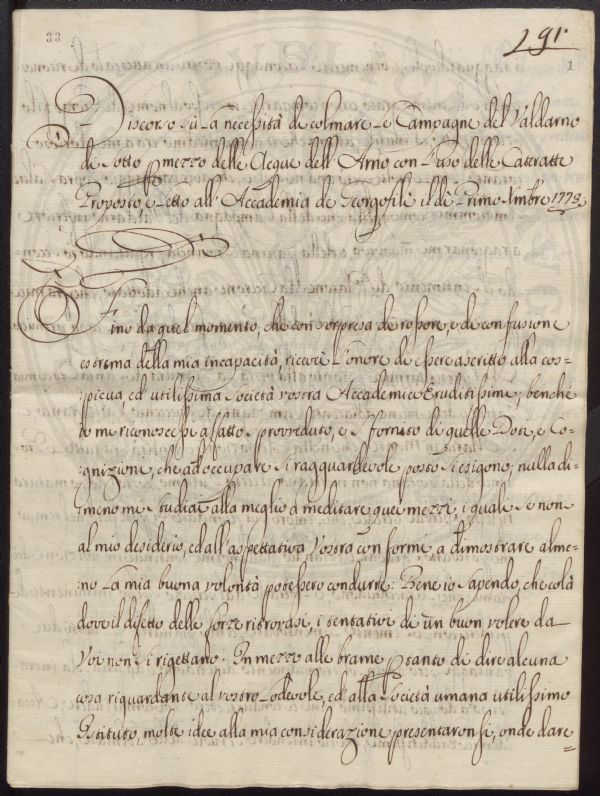 33
291.
1
Discorso sù La necessità di colmare Le Campagne del Valdarno
di Sotto p mezzo delle Acque dell'Arno con L'uso delle Cateratte
Proposto, e Letto all'Accademia de Georgofili il dì Primo 1773.
Fino da quel momento, che con sorpresa di rossore, e di confusione
estrema della mia incapacità, ricevei L'onore di essere ascritto alla cos-
:picua, ed utilissima Società vostra Accademici Eruditissimi, benchè
Io mi riconoscessi affatto sprovveduto, e fornito di quelle Doti, e Co-
:gnizioni, che ad occupare sì ragguardevole posto si esigono; nulladi-
:meno mi studiai alla meglio a meditare quei mezzi, i quali se non
al mio desiderio, ed all'aspettativa Vostra conformi, a dimostrare alme-
:no La mia buona volontà potessero condurre: Bene io sapendo, che colà
dove il difetto delle forze ritrovasi, i tentativi di un buon volere da
Voi non si rigettano. In mezzo alle brame ptanto di dire alcuna
cosa riguardante al vostro Lodevole, ed alla Società umana utilissimo
Istituto, molte idee alla mia considerazione presentaronsi, onde dare=